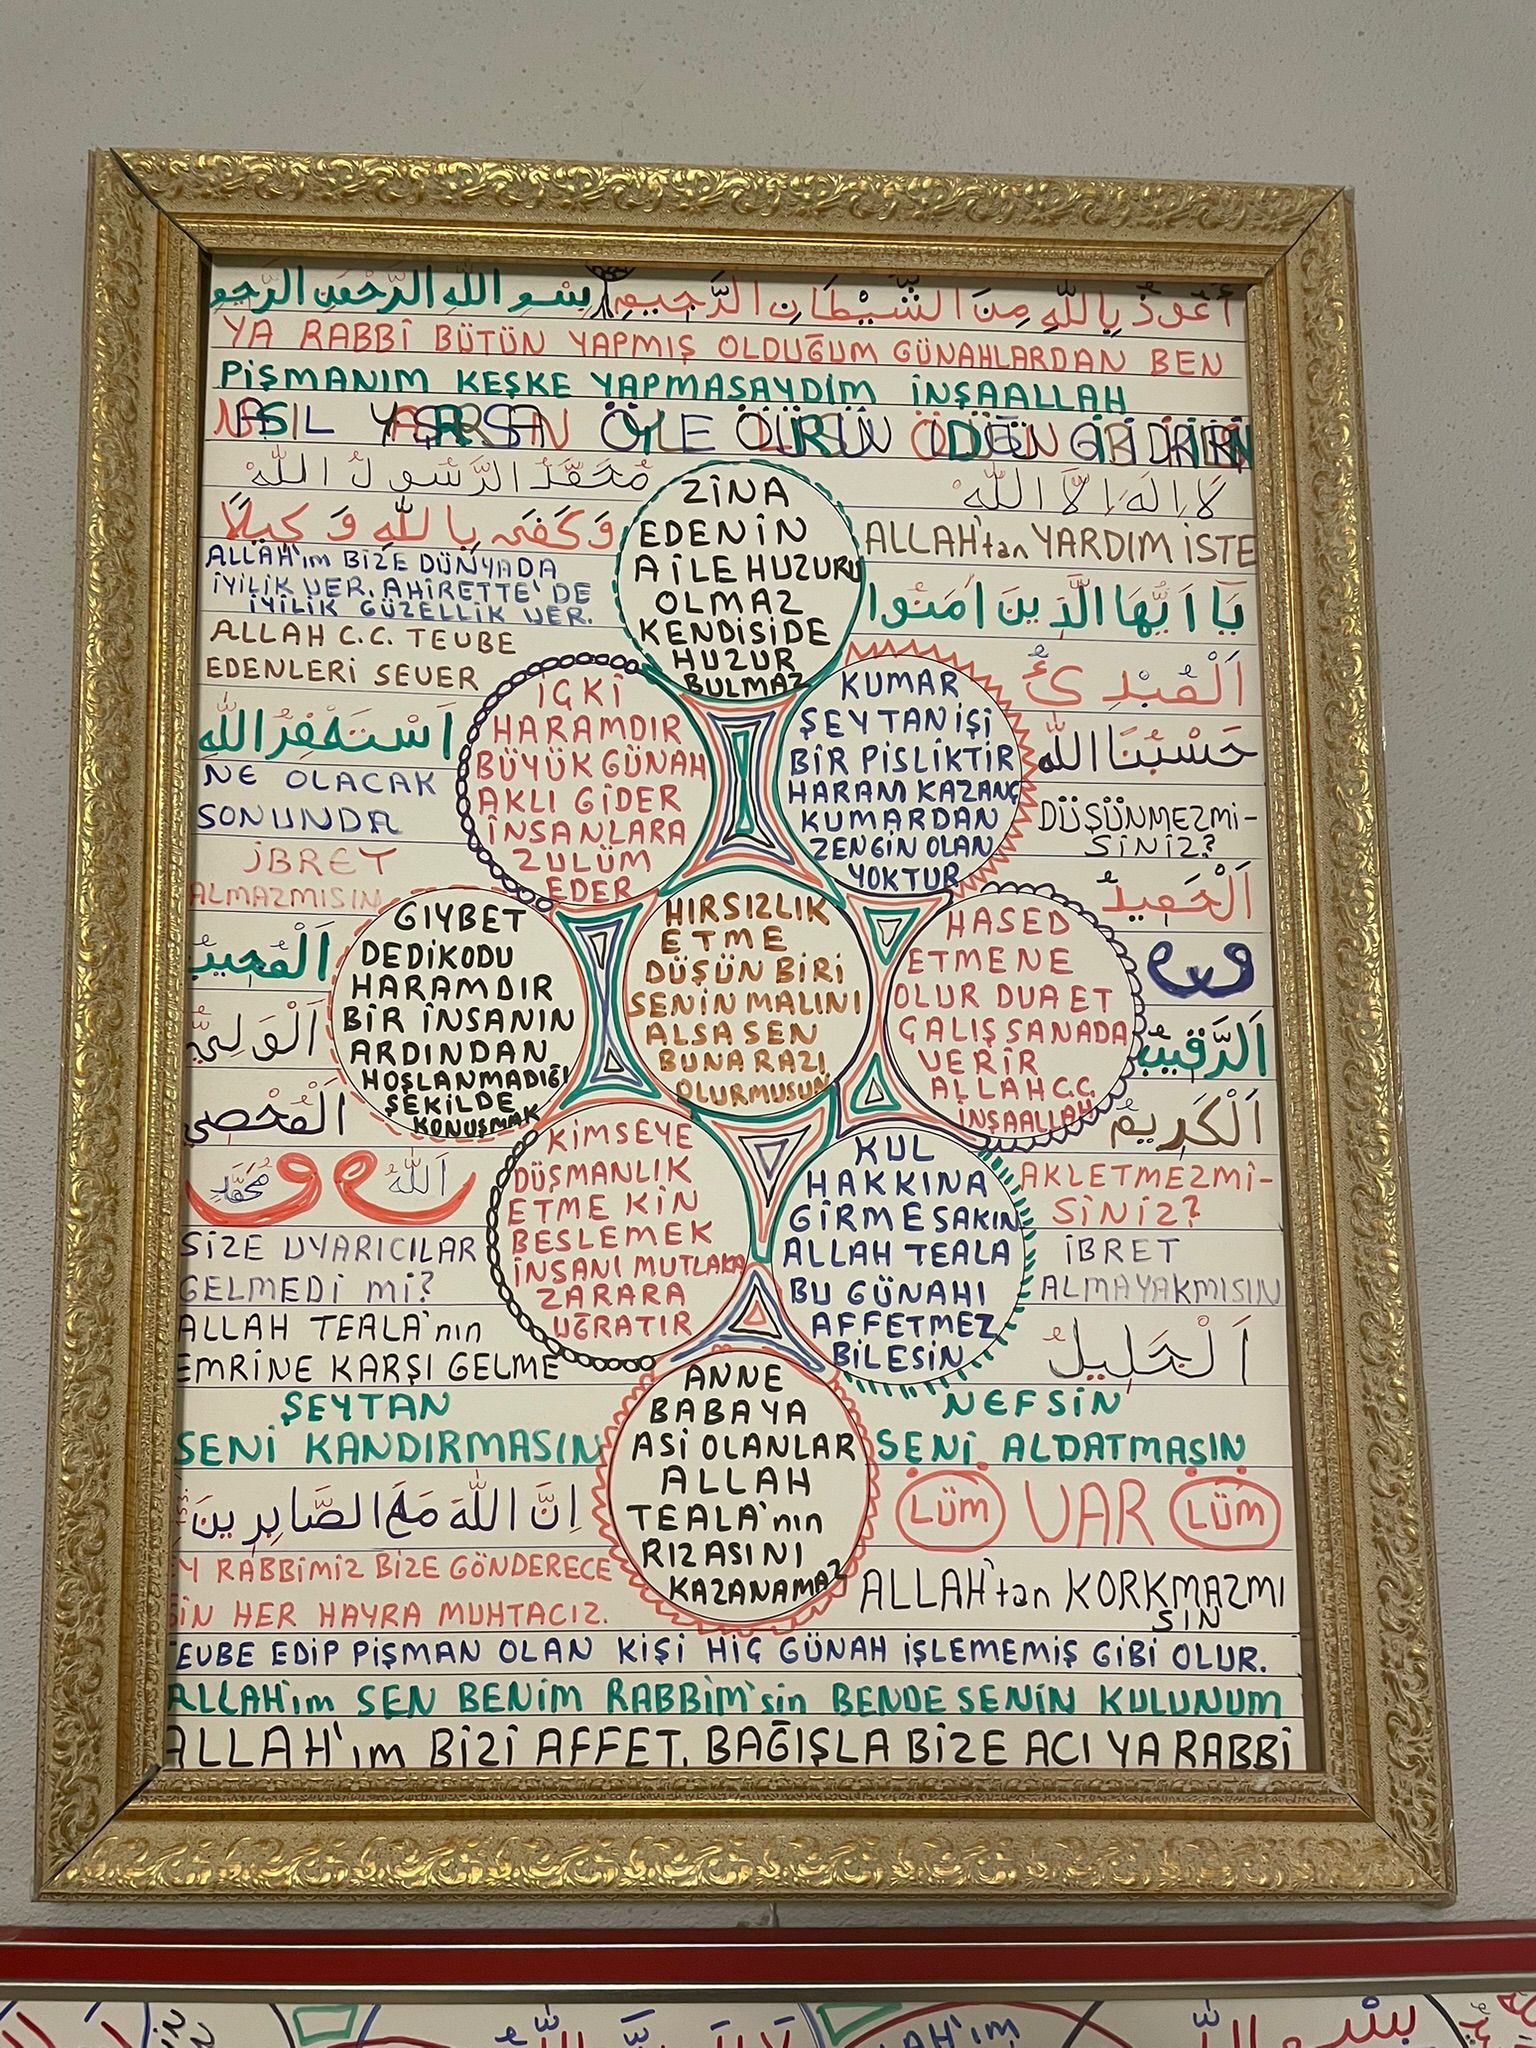 أَعُوذُ بِاللّٰهِ مِنَ الشَّيْطَانِ الرَّجِيمِ بِسْمِ اللّٰهِ الرَّحْمٰنِ الرَّحِيمِ
YA RABBİ BÜTÜN YAPMIŞ OLDUĞUM GÜNAHLARDAN BEN
PİŞMANIM KEŞKE YAPMASAYDIM İNŞAALLAH
NASIL YAŞARSAN ÖYLE ÖLÜRSÜN ÖLDÜĞÜN GİBİ
لَا اِلٰهَ اِلَّا اللّٰهُ
مُحَمَّدُ الرَّسُولُ اللّٰهُ
وَكَفَى بِاللّٰهِ وَكِيلًا
ALLAH'ım BİZE DÜNYADA
İYİLİK VER. AHİRETTE'DE
İYİLİK GÜZELLİK VER.
ALLAH C.C. TEUBE
EDENLERİ SEVER
اَسْتَغْفِرُ اللّٰه
NE OLACAK
SONUNDA
İBRET
ALMAZMISIN
اَلْمُجِيبُ
اَلْوَلِيُّ
اَلْمُحْصِي
اَللّٰهُ
و
مُحَمَّد
و
SİZE UYARICILAR
GELMEDİ Mİ?
ALLAH TEALA'nın
EMRİNE KARŞI GELME
ŞEYTAN
SENİ KANDIRMASIN
اِنَّ اللّٰهَ مَعَ الصَّابِرِينَ
Y RABBİMİZ BİZE GÖNDERECE
SİN HER HAYRA MUHTACIZ.
ZİNA
EDENİN
AİLE HUZURU
OLMAZ
KENDİSİDE
HUZUR
BULMAZ
İÇKİ
HARAMDIR
BÜYÜK GÜNAH
AKLI GİDER
İNSANLARA
ZULÜM
EDER
KUMAR
ŞEYTAN İŞİ
BİR PİSLİKTİR
HARAM KAZANÇ
KUMARDAN
ZENGİN OLAN
YOKTUR
GIYBET
DEDİKODU
HARAMDIR
BİR İNSANIN
ARDINDAN
HOŞLANMADIĞI
ŞEKİLDE
KONUŞMAK
HIRSIZLIK
ETME
DÜŞÜN BİRİ
SENİN MALINI
ALSA SEN
BUNA RAZI
OLURMUSUN
HASED
ETMENE
OLUR DUA ET
ÇALIŞ SANADA
VERİR
ALLAH C.C.
İNŞAALLAH
KİMSEYE
DÜŞMANLIK
ETME KİN
BESLEMEK
İNSANI MUTLAKA
ZARARA
UĞRATIR
KUL
HAKKINA
GİRME SAKIN
ALLAH TEALA
BU GÜNAHI
AFFETMEZ
BİLESİN
ANNE
BABAYA
ASİ OLANLAR
ALLAH
TEALA'nın
RIZASINI
KAZANAMAZ
ALLAH'tan YARDIM İSTE
يَا اَيُّهَا الَّذِينَ اٰمَنُوا
اَلْمُبْدِئُ
حَسْبُنَا اللّٰه
DÜŞÜNMEZMİ-
SİNİZ?
اَلْحَمِيدُ
و
اَلرَّقِيبُ
اَلْكَرِيمُ
AKLETMEZMİ-
SİNİZ?
İBRET
ALMAYAKMISIN
اَلْجَلِيلُ
NEFSİN
SENİ ALDATMASIN
LÜM VAR LÜM
ALLAH'tan KORKMAZMI
SIN
EUBE EDİP PİŞMAN OLAN KİŞİ HİÇ GÜNAH İŞLEMEMİŞ GİBİ OLUR.
ALLAH'ım SEN BENİM RABBİM'sin BENDE SENİN KULUNUM
ALLAH'ım BİZİ AFFET. BAĞIŞLA BİZE ACI YA RABBİ